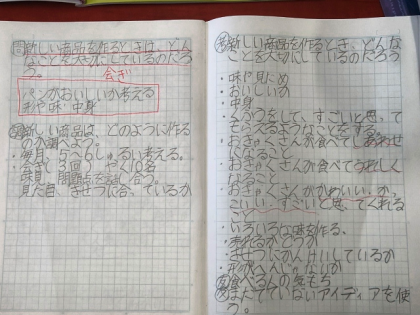 問新しい商品を作るときは、どん
なことを大切にしているのだろ
う。
会ぎ
パンがおいしいか考える
形や味・中身
新しい商品は、どのように作る
のか調べよう。
・毎月、5〜6しゅるい考える。
・会ぎ
見た目、きせつに合っているか
考新しい商品を作るとき、どんな
ことを大切にしているのだろう
・味や見ため
・おいしいか
・中身
・くふうをして、すごいと思って
もらえるようなことをする。
・おきゃくさんが食べてしあわせ
になること
・おきゃくさんが食べてうれしく
なること
・おきゃくさんがかわいい、か、
こいい、すごいと思ってくれる
こと
・いろいろな味を作る。
・売れるかどうか
・きせつにかんけいしているか
・形がへんじゃないか
食べる人の気もち
まだでていないアイディアを使
う。